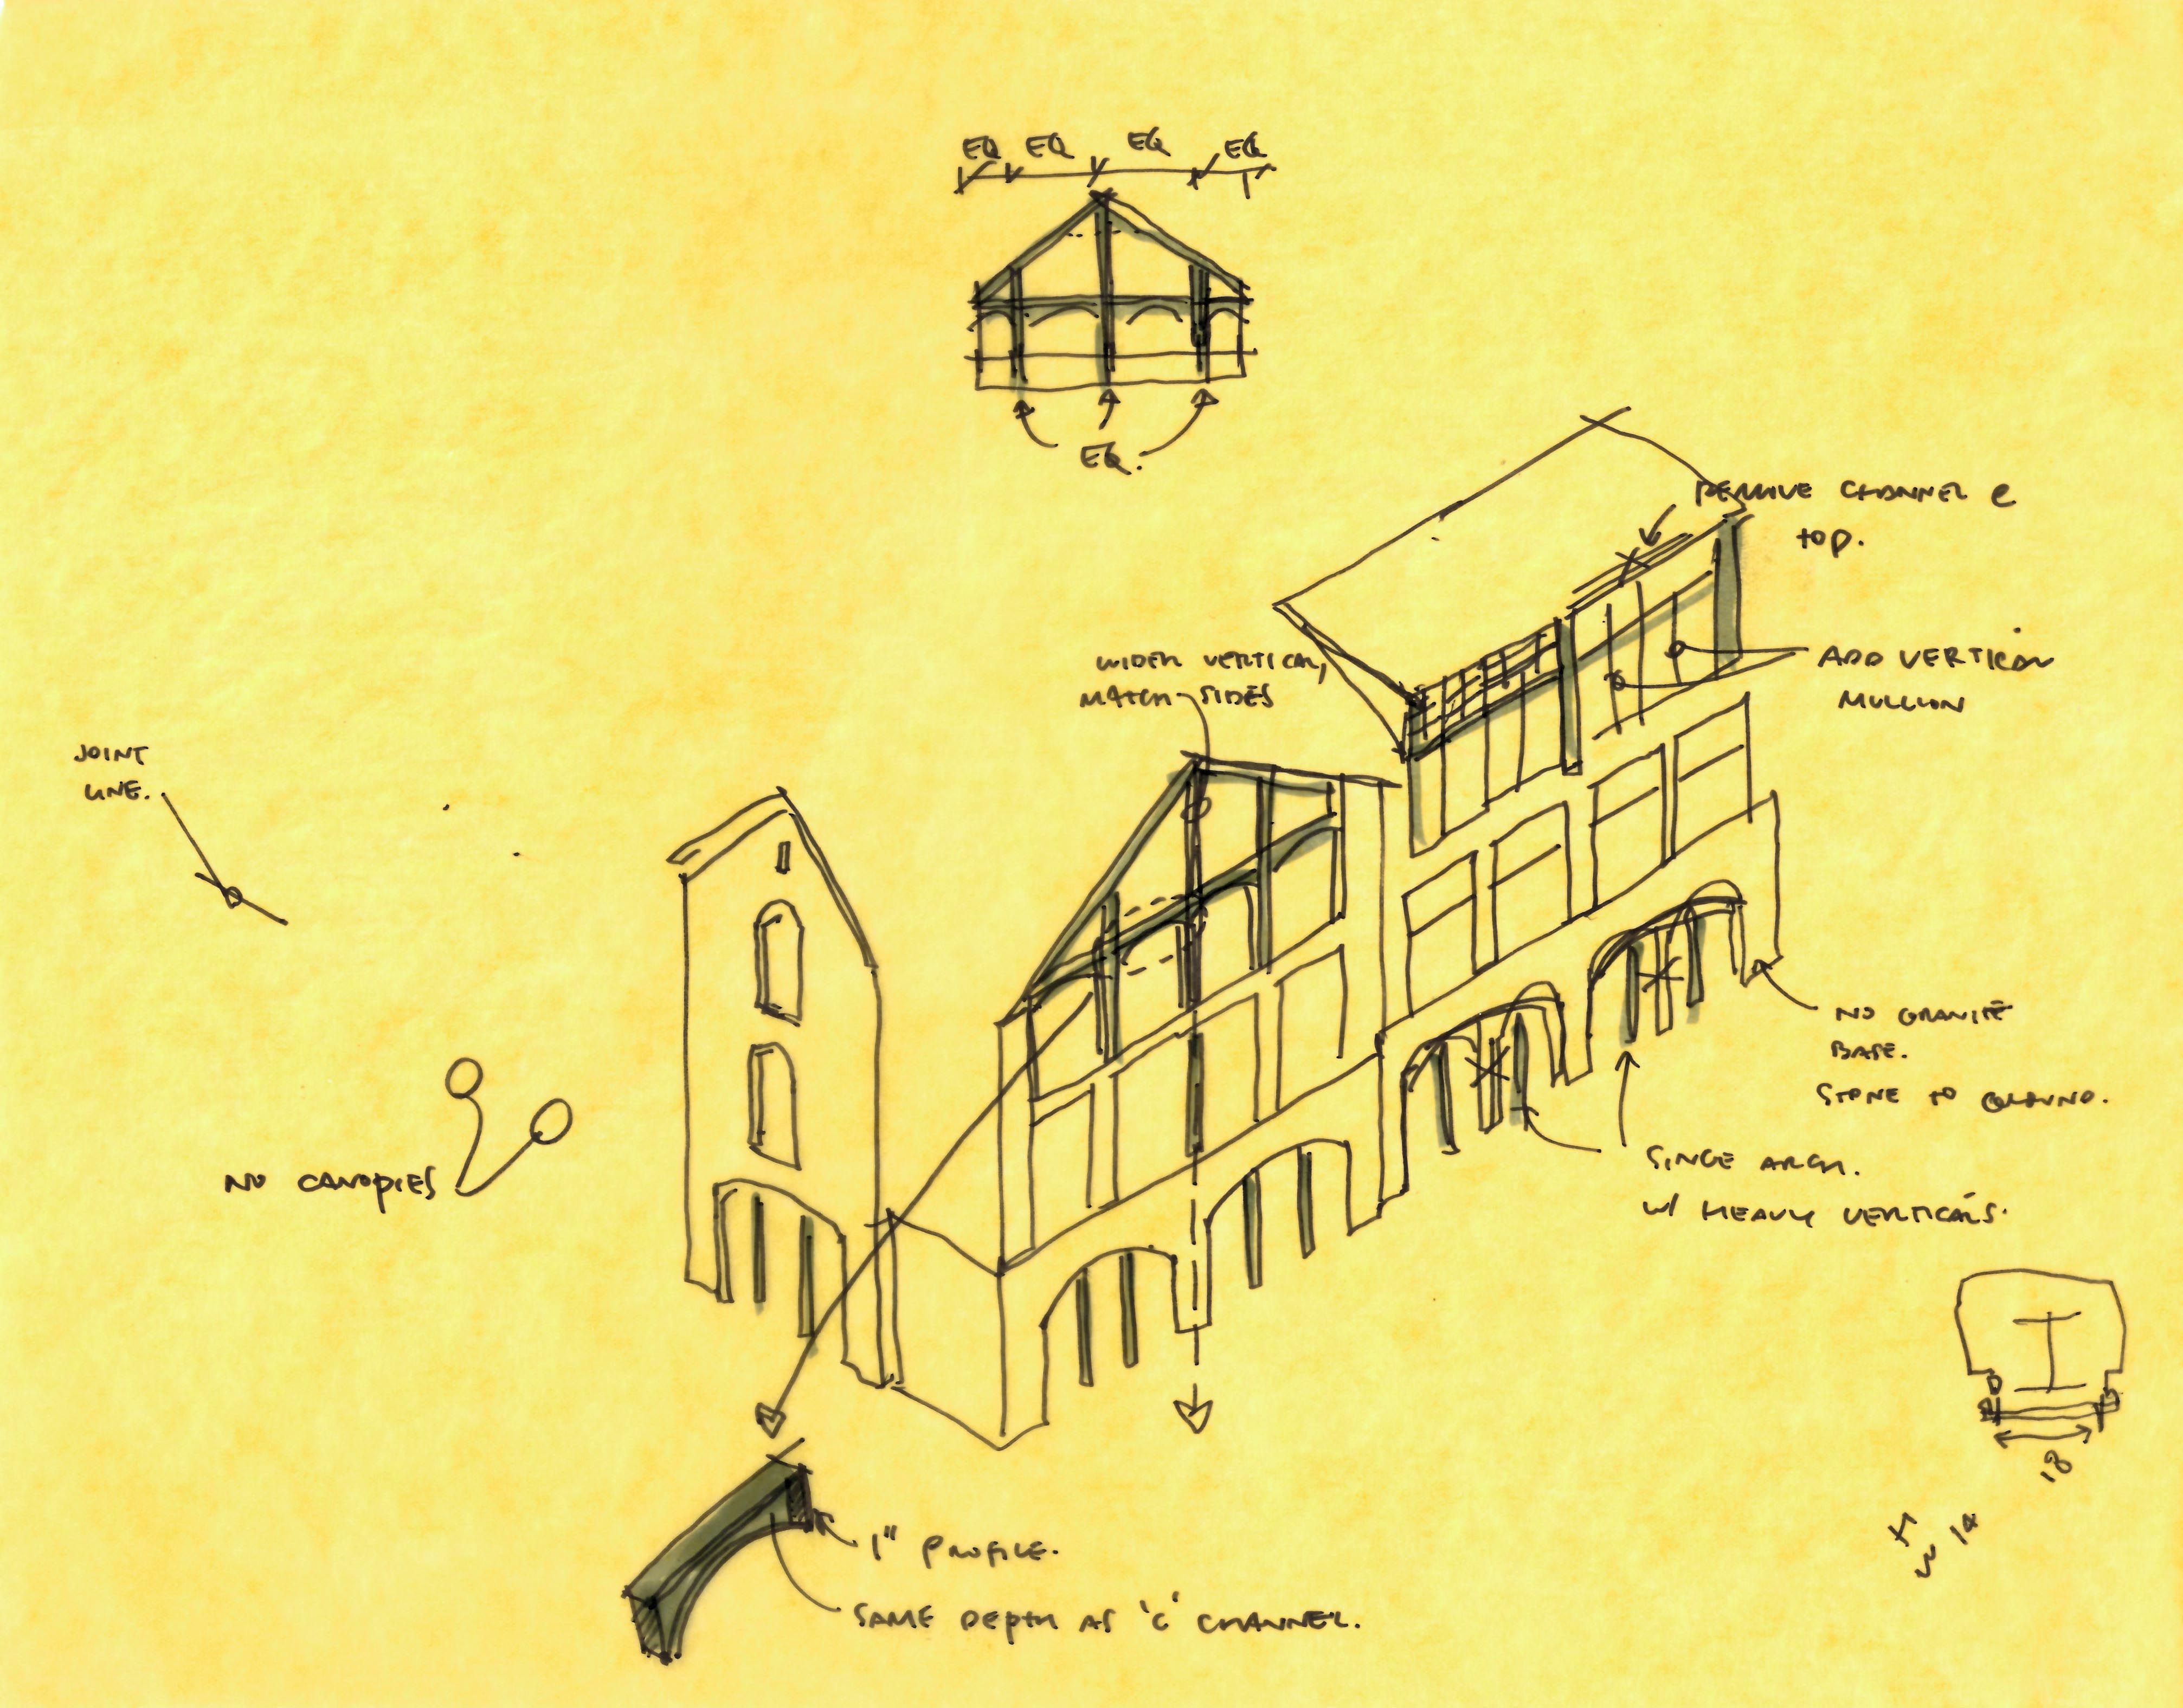 EQ EQ EQ EQ
EQ.
REMOVE CHANNEL @
TOP.
WIDER VERTICAL,
MATCH SIDES
ADD VERTICAL
MULLION
JOINT
LINE.
NO GRANITE
BASE.
STONE TO GROUND.
NO CANOPIES
SINGE ARCH.
W/ HEAVY VERTICALS.
18
14
1" PROFILE.
SAME DEPTH AS 'C' CHANNEL.